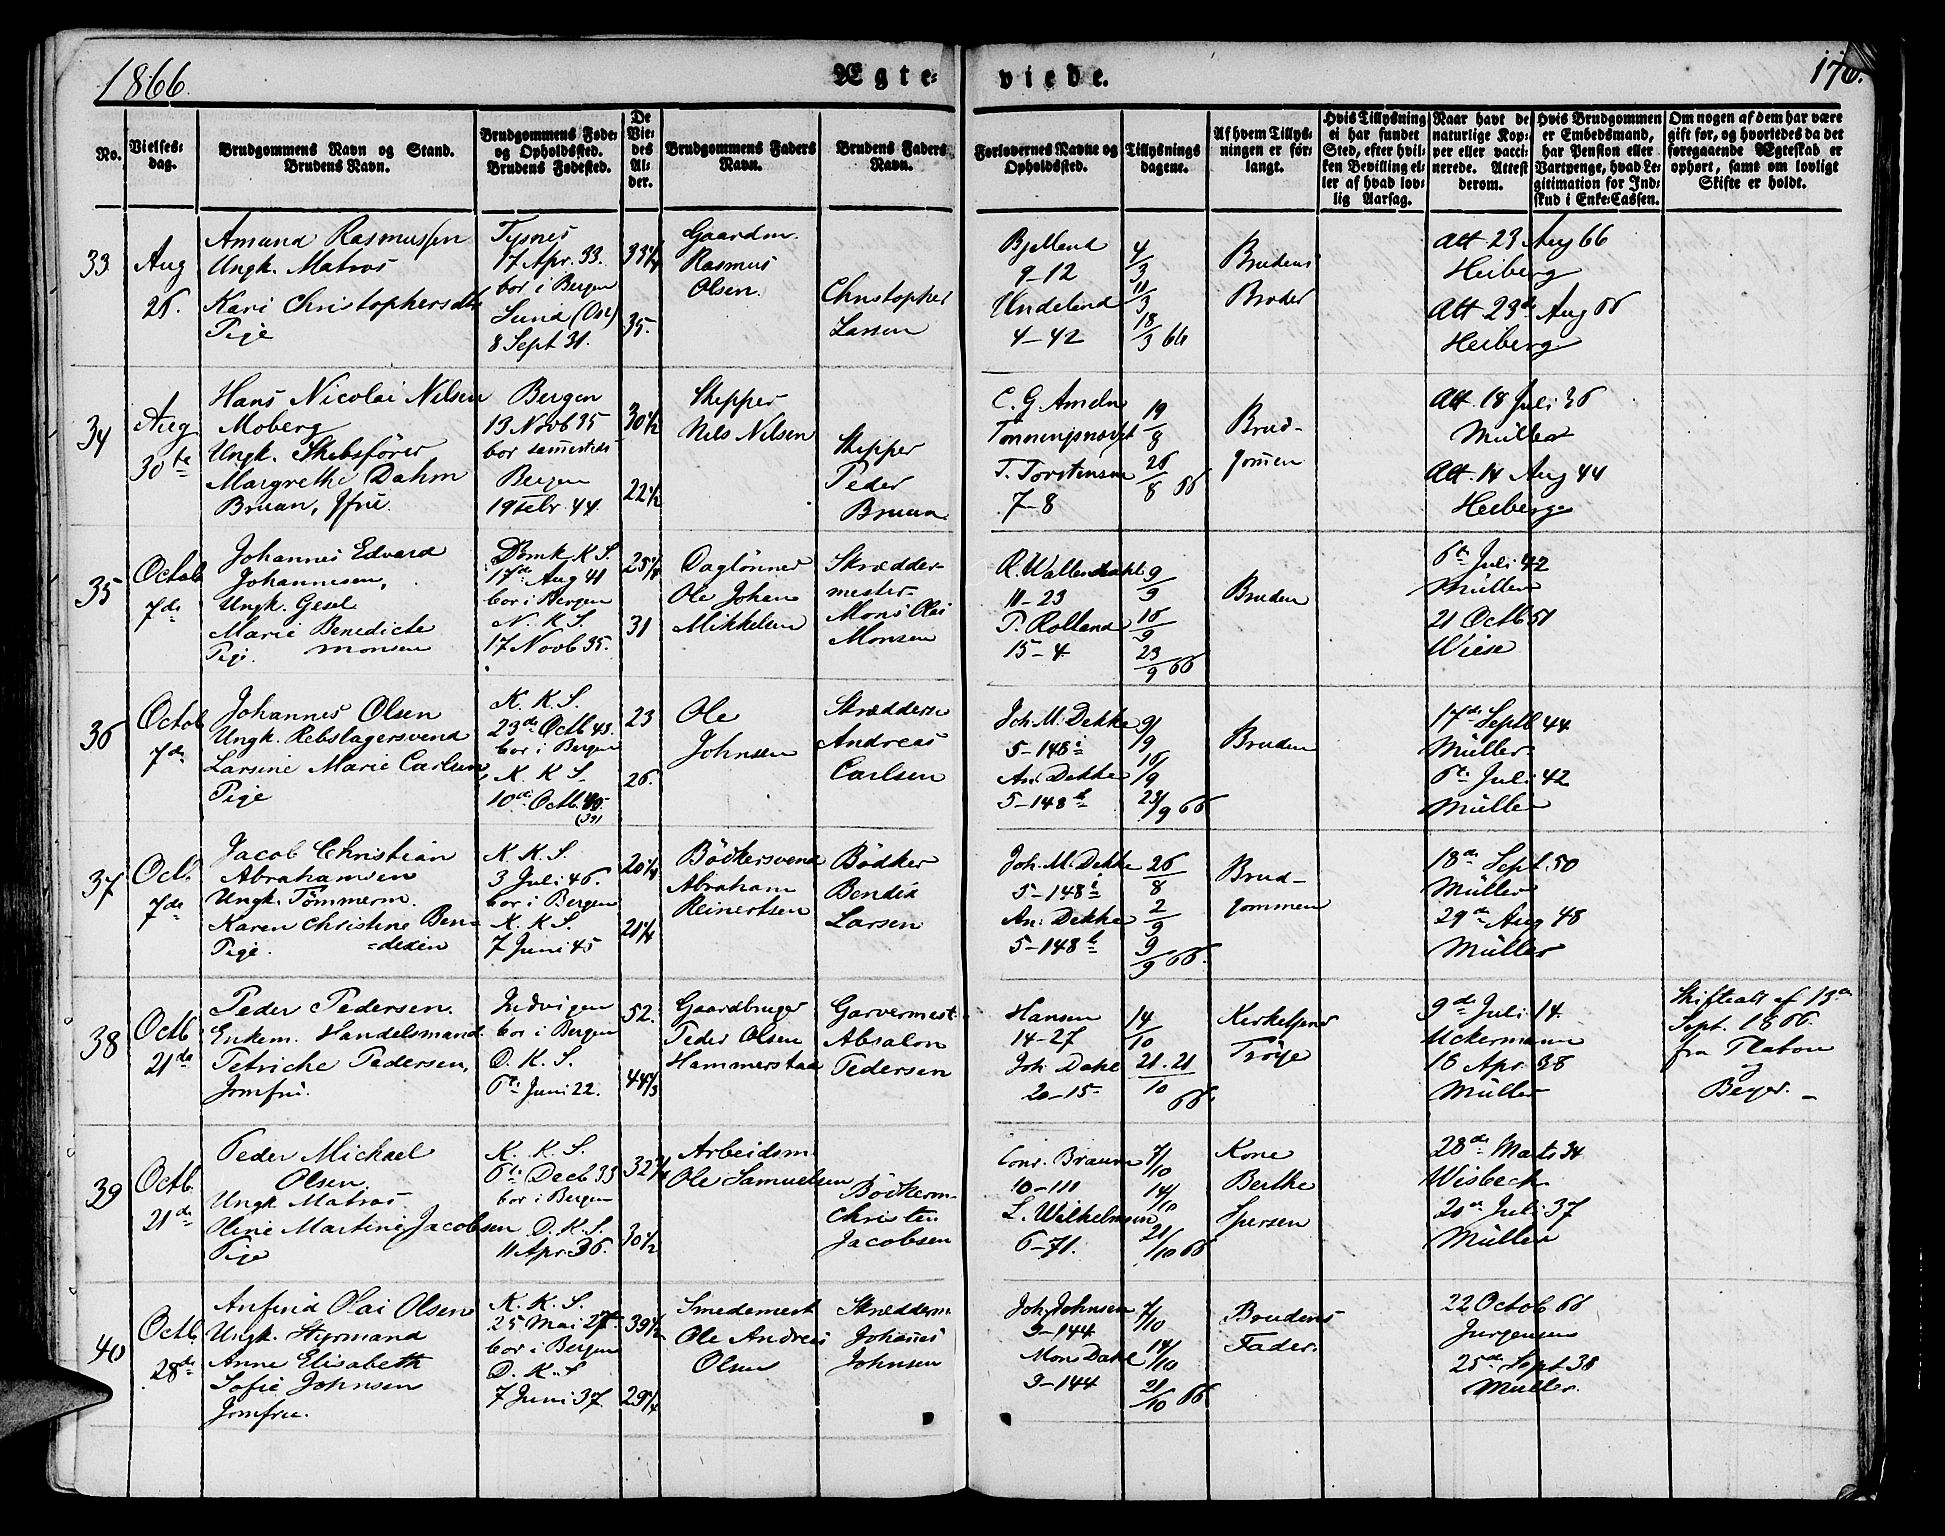 1866.
Ægte-
viede.
176.
No.
Vielses-
dag.
Brudgommens Navn og Stand.
Brudens Navn.
Brudgommens Føde-
og Opholdssted.
Brudens Fødested.
De
Vie-
des
Al-
der.
Brudgommens Faders
Navn.
Brudens Faders
Navn.
Forlovernes Navne og
Opholdssted.
Tillysnings
dagene.
Af hvem Tillys-
ningen er for-
langt.
Hvis Tillysning
ei har fundet
Sted, efter hvil-
ken Bevilling el-
ler af hvad lov-
lig Aarsag.
Naar havt de
naturlige Kop-
per eller vacci-
nerede. Attest
derom.
Hvis Brudgommen
er Embedsmand,
har Pension eller
Vartpenge, hvad Le-
gitimation for Ind-
skud i Enke-Cassen.
Om nogen af dem har være
gift før, og hvorledes da det
foregaaende Ægteskab er
ophørt, samt om lovligt
Skifte er holdt.
33.
Aug
26.
Amund Rasmussen
Ungk. Matros
Kari Christophersdtr
Pige
Tysnes
17 Apr. 33.
bor i Bergen
Sund (Os)
8 Sept 31.
33 1/4
35.
Gaardm.
Rasmus
Olsen.
Christopher
Larsen
Bjelland
9-12
Undeland
4-42
4/3
11/3
18/3 66
Brudens
Broder
Att 23 Aug 66
Heiberg
Att 23de Aug 66
Heiberg
34
Aug
30te
Hans Nicolai Nilsen
Moberg
Ungk. Skibsfører
Margrethe Dahm
Bruun, Jfru.
Bergen
13 Novb 35
bor sammesteds
Bergen
19 Febr. 44.
30 1/2
22 1/2
Skipper
Nils Nilsen
Skipper
Peder
Bruun
C. G. Ameln
T. Torstensen
7-8
19/8
26/8 66
Brud-
gommen
Att 18 Juli 36
Müller
Att. 14 Aug 44
Heiberg
35
Octob
7de
Johannes Edvard
Johannesen,
Ungk. Gesel
Marie Benedicte
Pige. Monsen
Domk. K S.
17de Aug 41
bor i Bergen
N. K S.
17 Novb 35.
25 1/4
31
Daglønner
Ole Johan
Mikkelsen
Skrædder-
mester
Mons Olai
Monsen
R. Wallendahl
11-23
P. Rolland
15-4
9/9
16/9
23/9 66
Bruden
6te Juli 42
Müller
21 Octb 51
Wiese
36
Octob
7de
Johannes Olsen
Ungk. Rebslagersvend
Larsine Marie Carlsen
Pige
K. K S.
23de Octb 43.
bor i Bergen
K. K S.
10de Octb. 40.
(39)
23
26.
Ole
Johnsen
Skrædderm
Andreas
Carlsen
Joh. M. Dekke
5-148 i
An. Dekke
5-148 k
9/9
16/9
23/9 66
Bruden
17de Septb 44
Müller
6te Juli 42
Müller
37
Oct.
7de
Jacob Christian
Abrahamsen
Ungk. Tømmerm.
Karen Christine Ben-
Pige. =dixen
K. K. S.
3 Juli 46.
bor i Bergen
K. K S.
7 Juni 45
20 1/4
21 1/4
Bødkersvend
Abraham
Reinertsen
Bødker
Bendix
Larsen
Joh. M. Dekke
5-148 i
An. Dekke
5-148 k
26/8
2/9
9/9 66.
Brud-
gommen
18de Sept. 50
Müller
29de Aug 48
Müller
38
Octb
21de
Peder Pedersen.
Enkem. Handelsmand
Petriche Pedersen,
Jomfru.
Indvigen
bor i Bergen
D. K S.
6te Juni 22.
52.
44 1/3
Gaardbruger
Peder Olsen
Hammerstad
Garvermest.
Absalon
Pedersen
Hansen
14-27
Joh. Dahl
20-15
14/10
21. 21/10 66.
Kirkespr
Trøye
9de Juli 14.
Uckermann
18 Apr. 38
Müller
Skifteatt af 13de
Sept. 1866.
fra Platou
og
Beyer.
39
Octb.
21de
Peder Michael
Olsen.
Ungk Matros
Oline Martine Jacobsen
Pige
K. K. S.
6te Decb 33
bor i Bergen
D. K. S.
11 Apr. 36.
32 3/4
30 1/2
Arbeidsm.
Ole Samuelsen
Bødkerm.
Christen
Jacobsen
Conr. Braun
10-111
L. Wilhelmsen
6-71.
7/10
14/10
21/10 66
Kone
Berthe
Iversen
28de Marts 34
Wisbech
20de Juli 37
Müller
40
Octb.
28de
Anfind Olai Olsen
Ungk. Styrmand
Anne Elisabeth
Sofie Johnsen
Jomfru.
K. K. S.
25 Mai 27
bor i Bergen
D. K. S
7 Juni 37
39 1/2
29 1/4
Smedemest
Ole Andreas
Olsen
Skrædderm.
Johannes
Johnsen
Joh. Johnsen
3-144
Mons Dahl
3-144
7/10
14/10
21/10 66
Brudens
Fader.
22 Octob 66
Jurgensen
25de Sept 38
Müller.